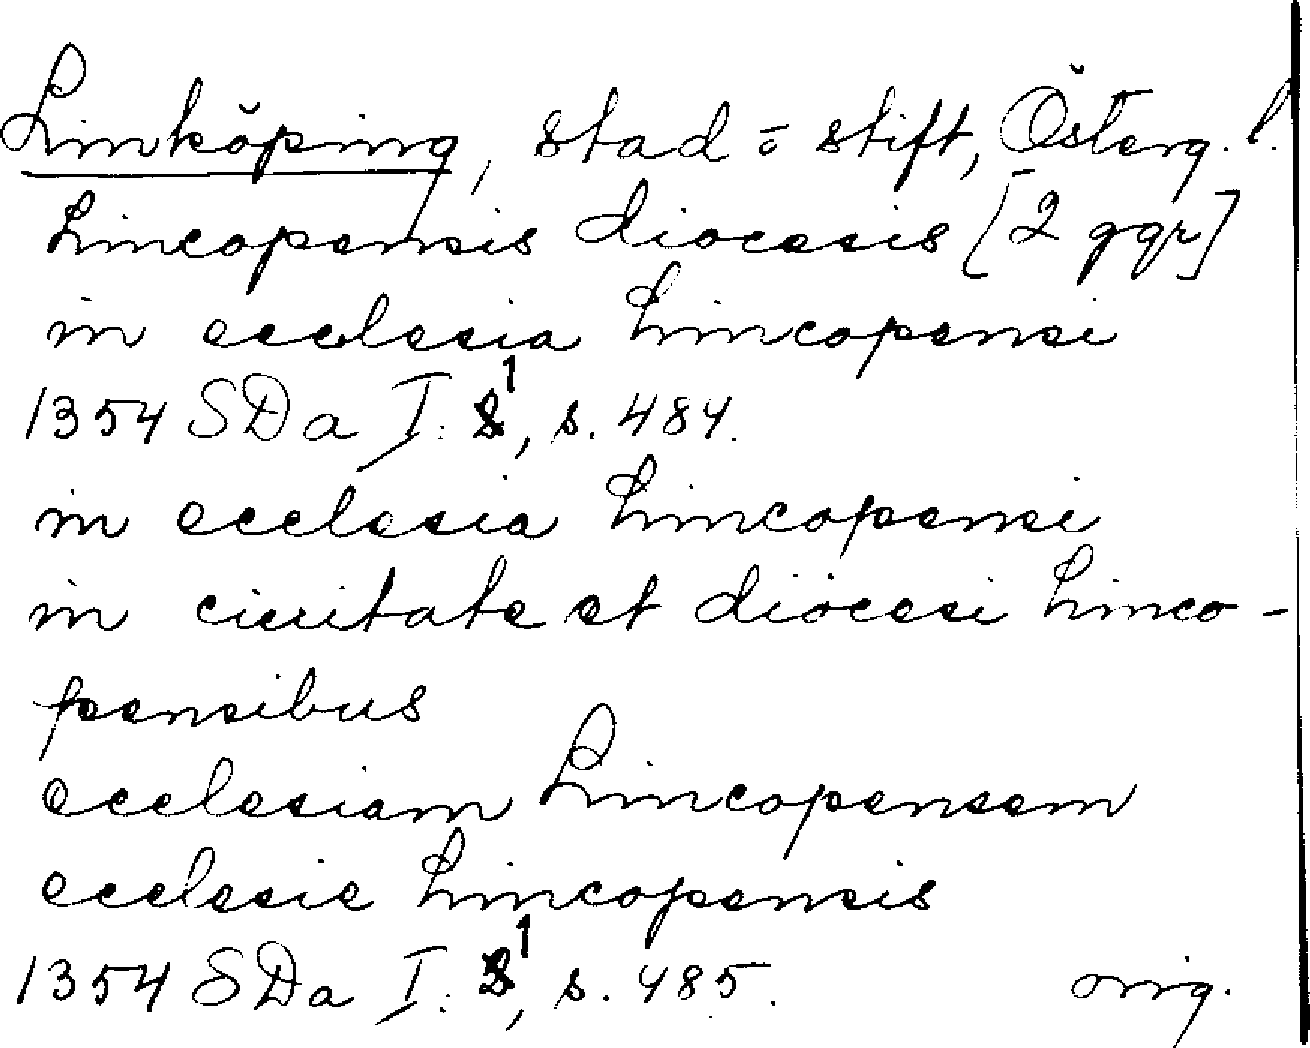 Linköping, stad o. stift, Österg. l.
Lincopensis diocesis [2 ggr]
in ecclesia Lincopensi
1354 SDa I: 1, s. 484.
in ecclesia Lincopensi
in ciuitate et diocesi Linco-
pensibus
ecclesiam Lincopensem
ecclesie Lincopensis
1354 SDa I: 1, s. 485. orig.